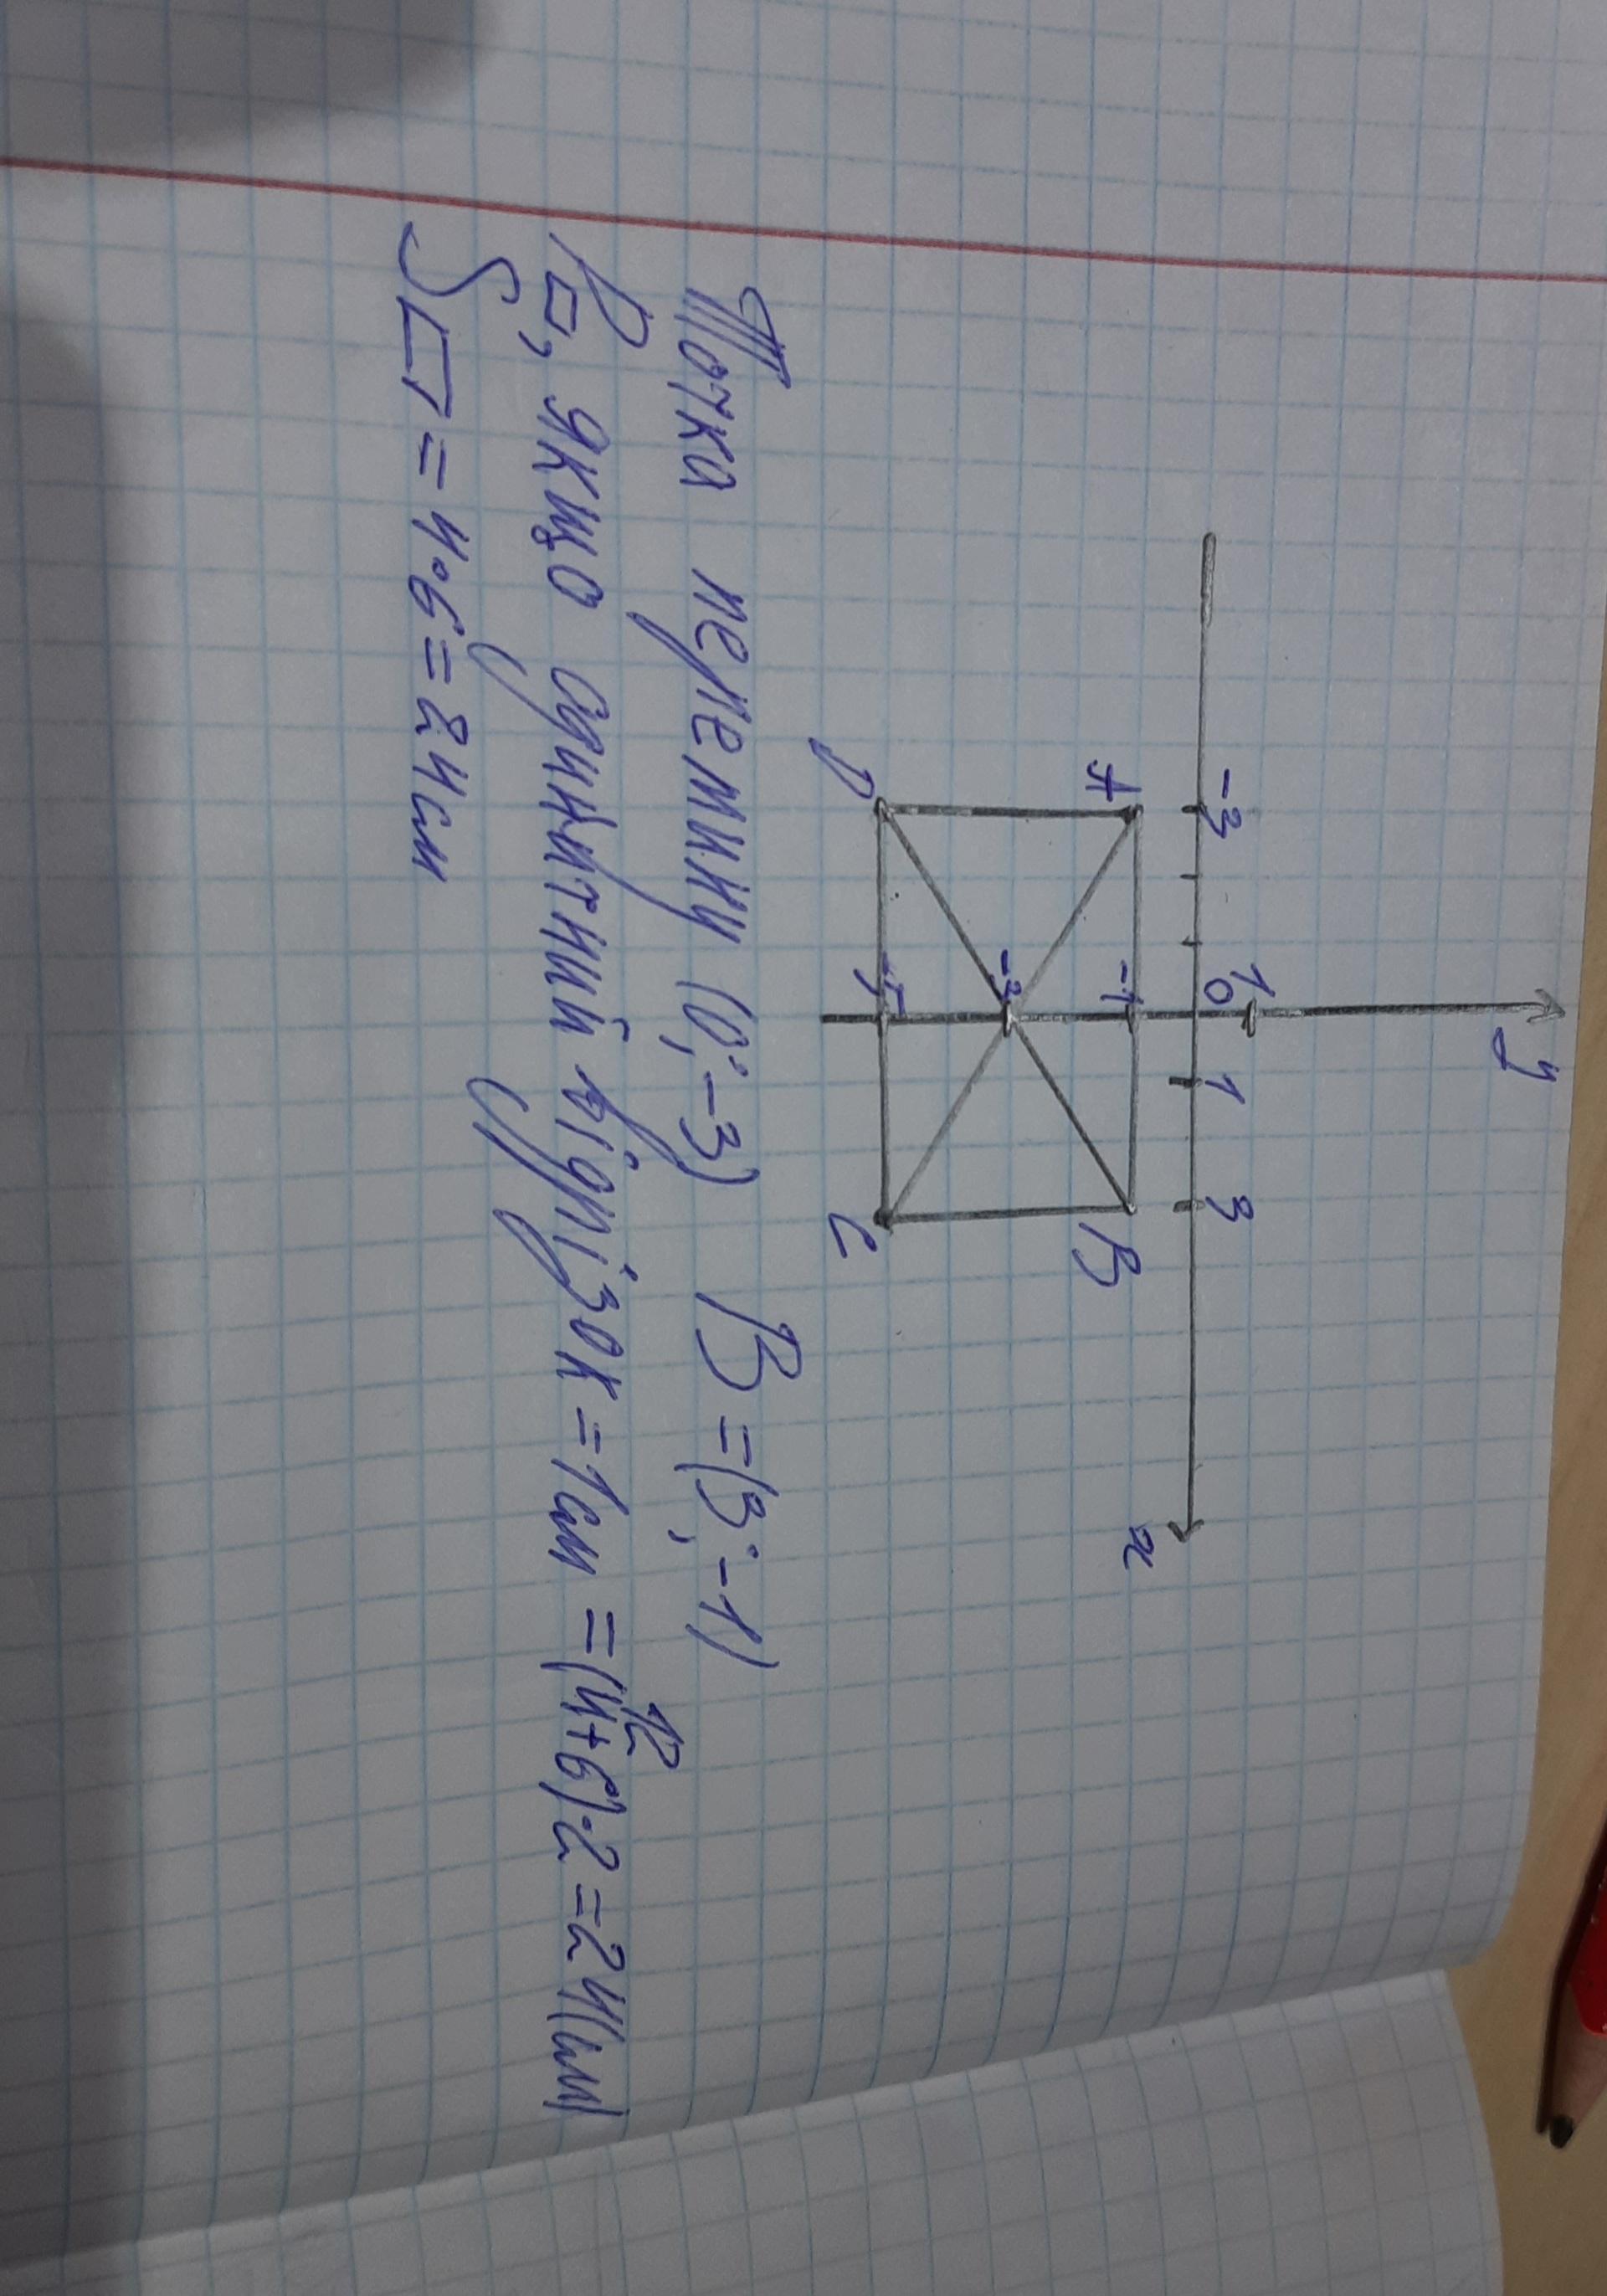 y
1
-3 0 1 3
x
A -1 B
-3
D -5 C
Точка перетину (0; -3) B = (3; -1)
12
P▭, якщо одиничний відрізок = 1 см = (4+6)·2 = 24(см)
S▭ = 4·6 = 24 см